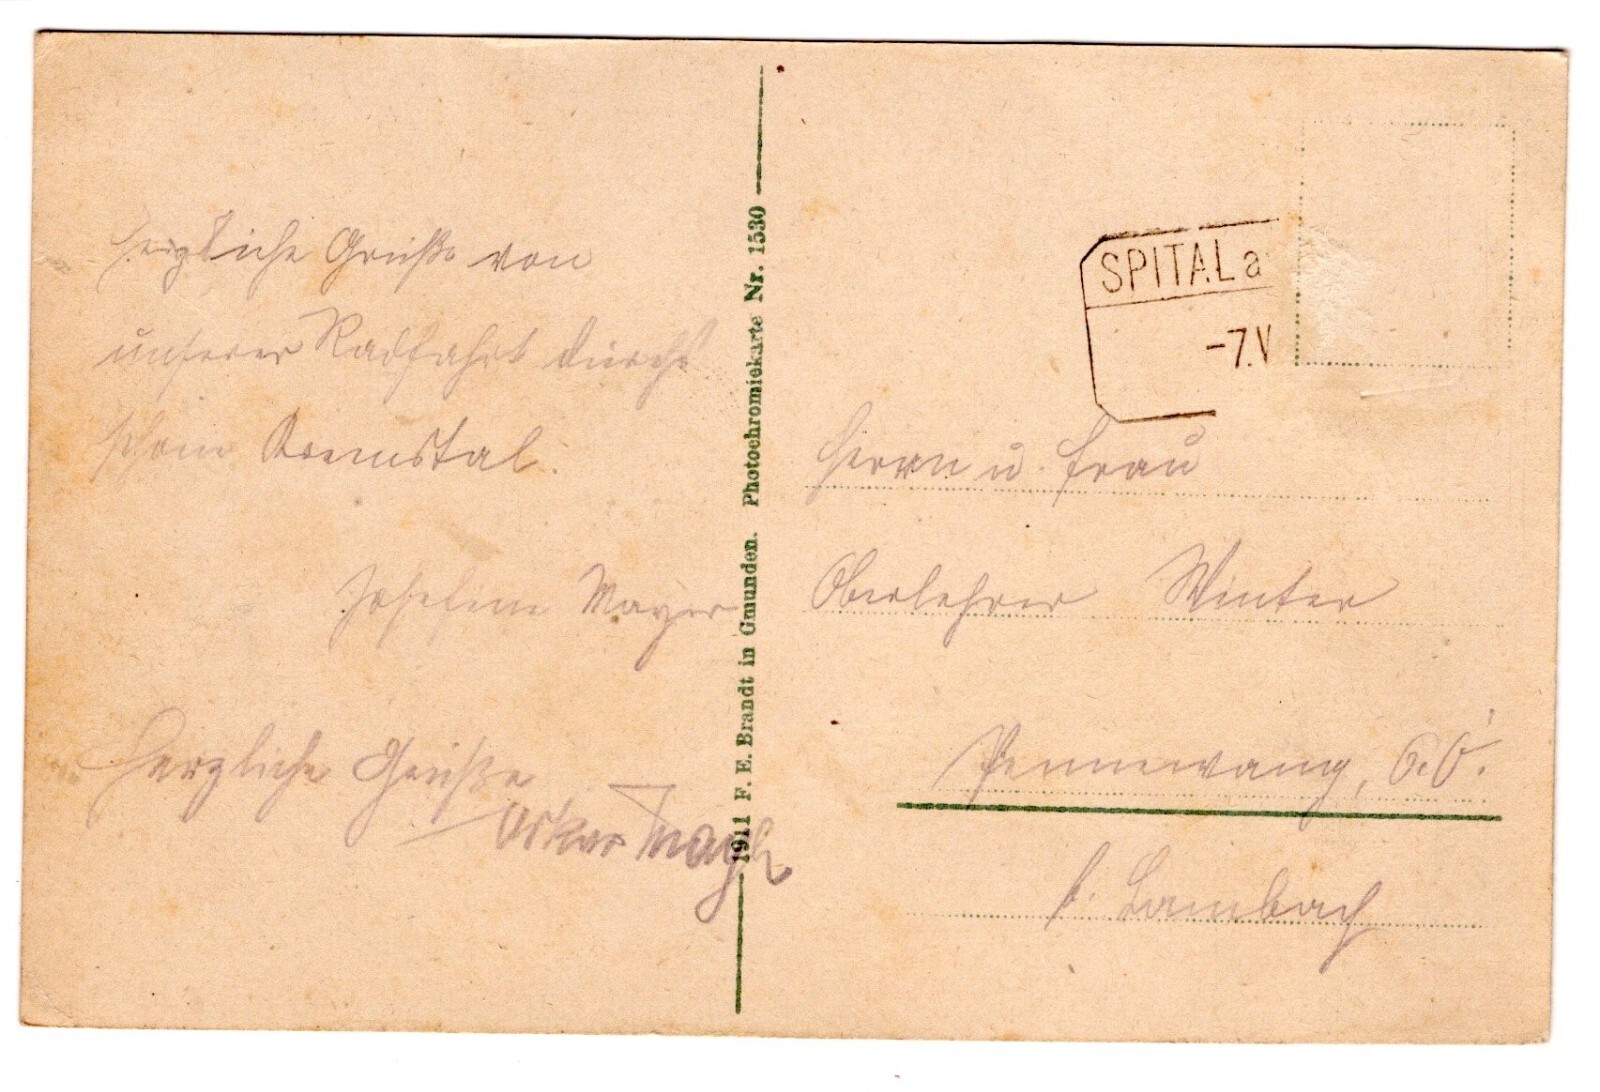 Herzliche Grüße von
unserer Radfahrt durchs
schöne Kremstal.
Josefine Mayer
Herzliche Grüße
Oskar
1911 F. E. Brandt in Gmunden. Photochromiekarte Nr. 1530
SPITAL a
-7.V
Herrn u. Frau
Oberlehrer Winter
Pennewang, O.Ö.
b. Lambach